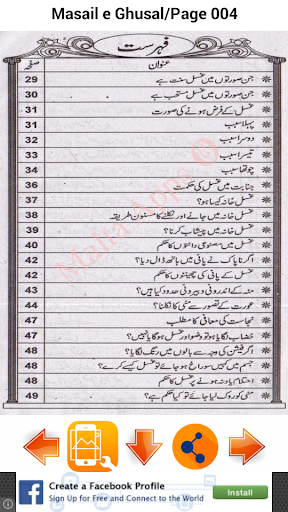 Masail e Ghusal/Page 004
فہرست
عنوان صفحہ
جن صورتوں میں غسل سنت ہے 29
جن صورتوں میں غسل مستحب ہے 30
غسل کے فرض ہونے کی صورت 31
پہلا سبب 31
دوسرا سبب 32
تیسرا سبب 33
چوتھا سبب 34
جنابت میں غسل کی حکمت 36
غسل خانہ کیسا ہو؟ 37
غسل خانہ میں جانے اور نکلنے کا مسنون طریقہ 38
غسل خانہ میں پیشاب کرنا؟ 39
غسل میں مصنوعی دانتوں کا حکم 40
اگر ناپاک نے پانی میں ہاتھ ڈال دیا؟ 42
غسل کے پانی کی چھینٹوں کا حکم 42
منہ کے اندرونی و بیرونی حدود کیا ہیں؟ 43
عورت کے تصور سے منی کا نکلنا؟ 44
نجاست کی معافی کا مطلب 47
خضاب لگایا ہو تو وضو اور غسل ہوگا یا نہیں؟ 47
اگر فیشن کی وجہ سے بالوں میں رنگ لگایا؟ 48
جسم میں کہیں سوراخ ہو جائے تو غسل کیسے کرے؟ 48
احتلام یاد نہ ہونے پر غسل کا حکم 48
منی کو روک لیا جائے تو کیا حکم ہے؟ 49
Malta Apps ©
Create a Facebook Profile
Sign Up for Free and Connect to the World
Install